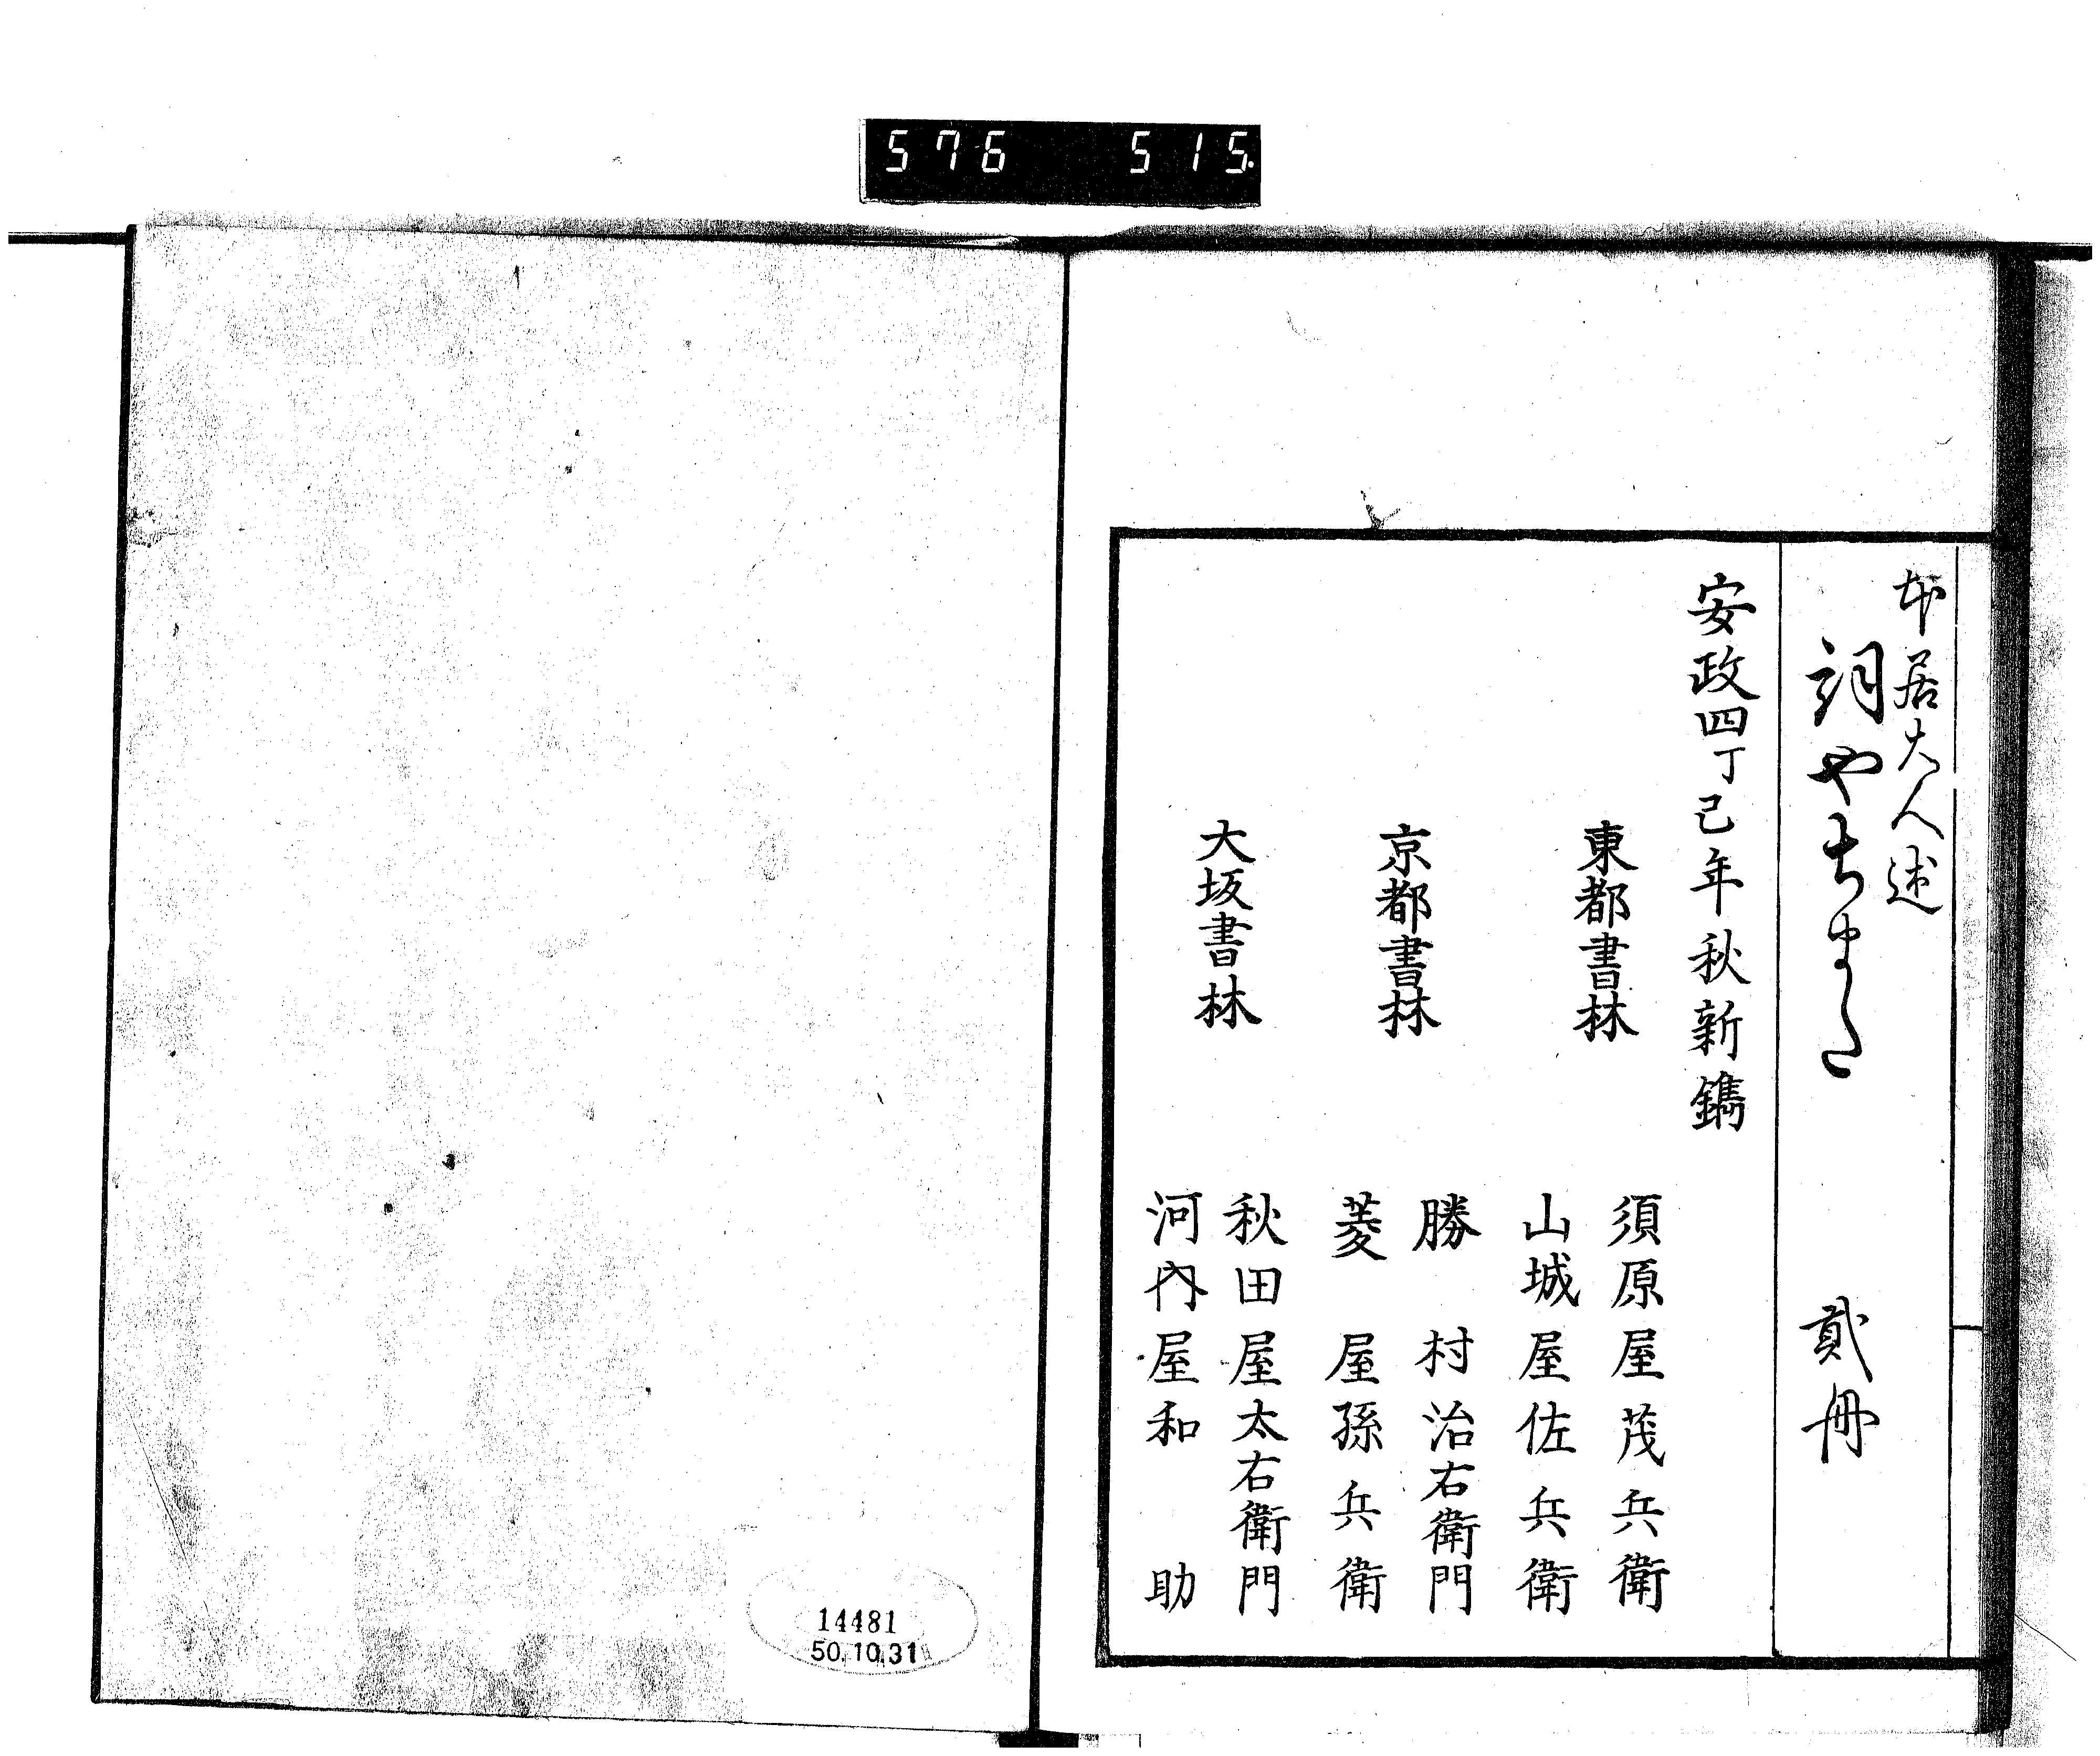 576 515.
本居大人述
詞やちまた 貳冊
安政四丁己年秋新鐫
東都書林
須原屋茂兵衛
山城屋佐兵衛
京都書林
勝村治右衛門
菱屋孫兵衛
大坂書林
秋田屋太右衛門
河内屋和助
14481
50.10.31